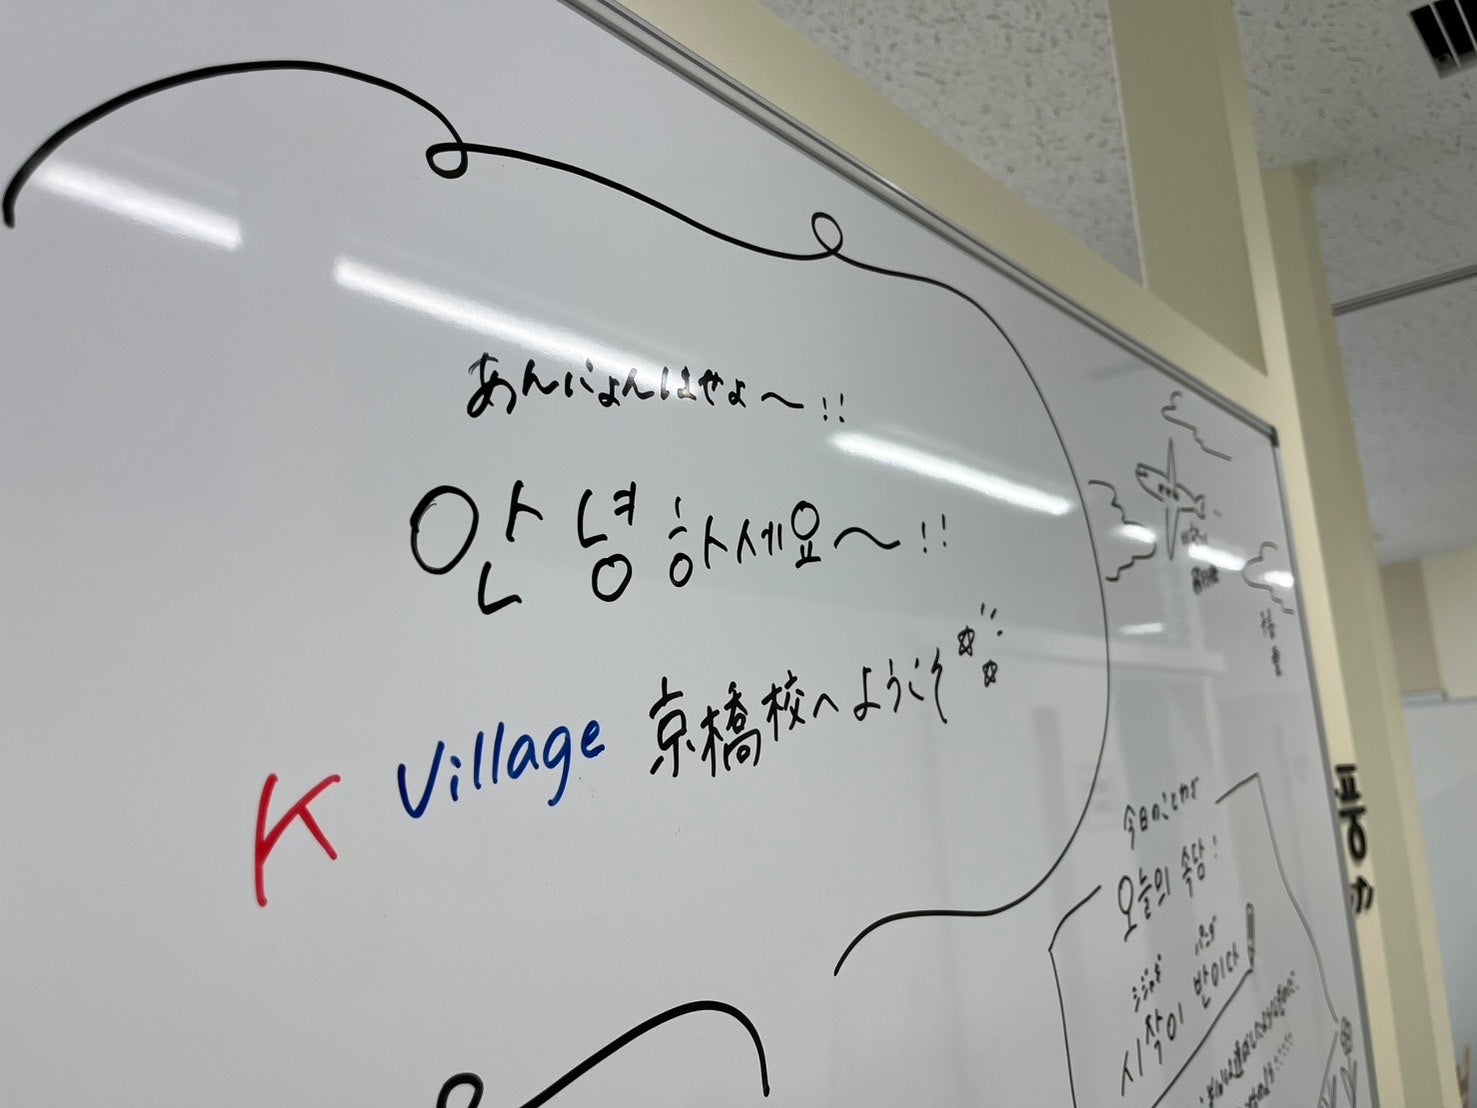 あんにょんはせよ～!!
안녕하세요～!!
K Village 京橋校へようこそ
今日のことわざ
오늘의 속담:
시작이 반이다!